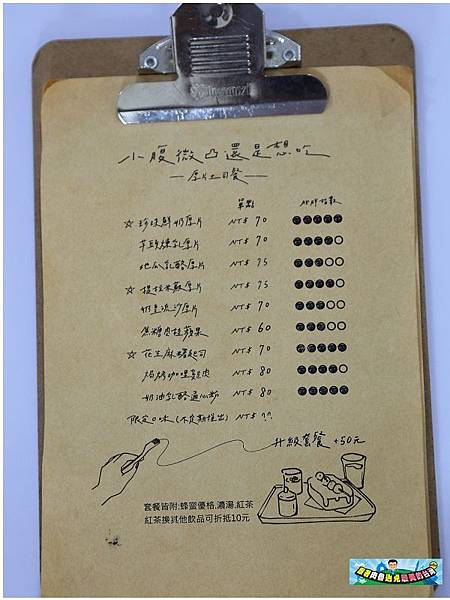 小腹微凸還是想吃
—厚片土司餐—
單點 胖胖指數
☆ 珍珠鮮奶厚片 NT$ 70 ●●●●●
芋頭煉乳厚片 NT$ 70 ●●●●○
地瓜乳酪厚片 NT$ 75 ●●●○○
☆ 提拉米蘇厚片 NT$ 75 ●●●●○
奶皇流沙厚片 NT$ 70 ●●●○○
焦糖肉桂蘋果 NT$ 60 ●●●○○
☆ 花生麻糬起司 NT$ 70 ●●●●●
焗烤咖哩雞肉 NT$ 80 ●●●●○
奶油乳酪通心粉 NT$ 80 ●●●●●
限定口味(不定期推出) NT$ ??
升級套餐 +50元
套餐皆附:蜂蜜優格.濃湯.紅茶
紅茶換其他飲品可折抵10元